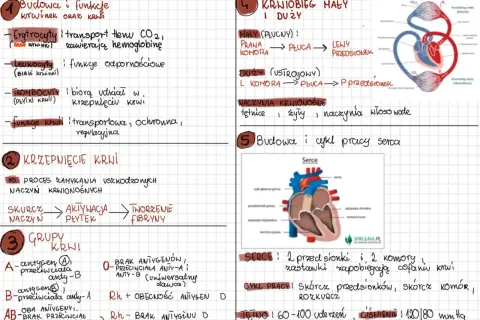 1 Budowa i funkcje
krwinek oraz krwi
- Erytrocyty : transport tlenu CO2,
zawierają hemoglobinę
- Leukocyty : funkcje odpornościowe
(BIAŁE KRWINKI)
- TROMBOCYTY : biorą udział w
(PŁYTKI KRWI) krzepnięciu krwi
- funkcje krwi : transportowa, ochronna,
regulacyjna
2 KRZEPNIĘCIE KRWI
PROCES ZAMYKANIA USZKODZONYCH
NACZYŃ KRWIONOŚNYCH
SKURCZ → AKTYWACJA → TWORZENIE
NACZYŃ PŁYTEK FIBRYNY
3 GRUPY
KRWI
A - antygen A,
przeciwciała
anty-B
B - antygen B,
przeciwciała anty-A
AB - OBA ANTYGENY,
BRAK PRZECIWCIAŁ
0 - BRAK ANTYGENÓW,
PRZECIWCIAŁA ANTY-A i
ANTY-B (uniwersalny
dawca)
Rh+ OBECNOŚĆ ANTYGEN D
Rh- BRAK ANTYGENU D
4 KRWIOBIEG MAŁY
I DUŻY
MAŁY (PŁUCNY) :
PRAWA → PŁUCA → LEWY
KOMORA PRZEDSIONEK
DUŻY (USTROJOWY)
L KOMORA → PŁUCA → P PRZEDSIONEK
NACZYNIA KRWIONOŚNE
tętnice, żyły, naczynia włosowate
5 Budowa i cykl pracy serca
Serce
SERCE : 2 przedsionki i 2 komory,
zastawki zapobiegają cofaniu krwi
CYKL PRACY : SKÓRCZ przedsionków, SKÓRCZ KOMÓR,
ROZKURCZ
TĘTNO : 60-100 uderzeń, CIŚNIENIE : 120/80 mmHg